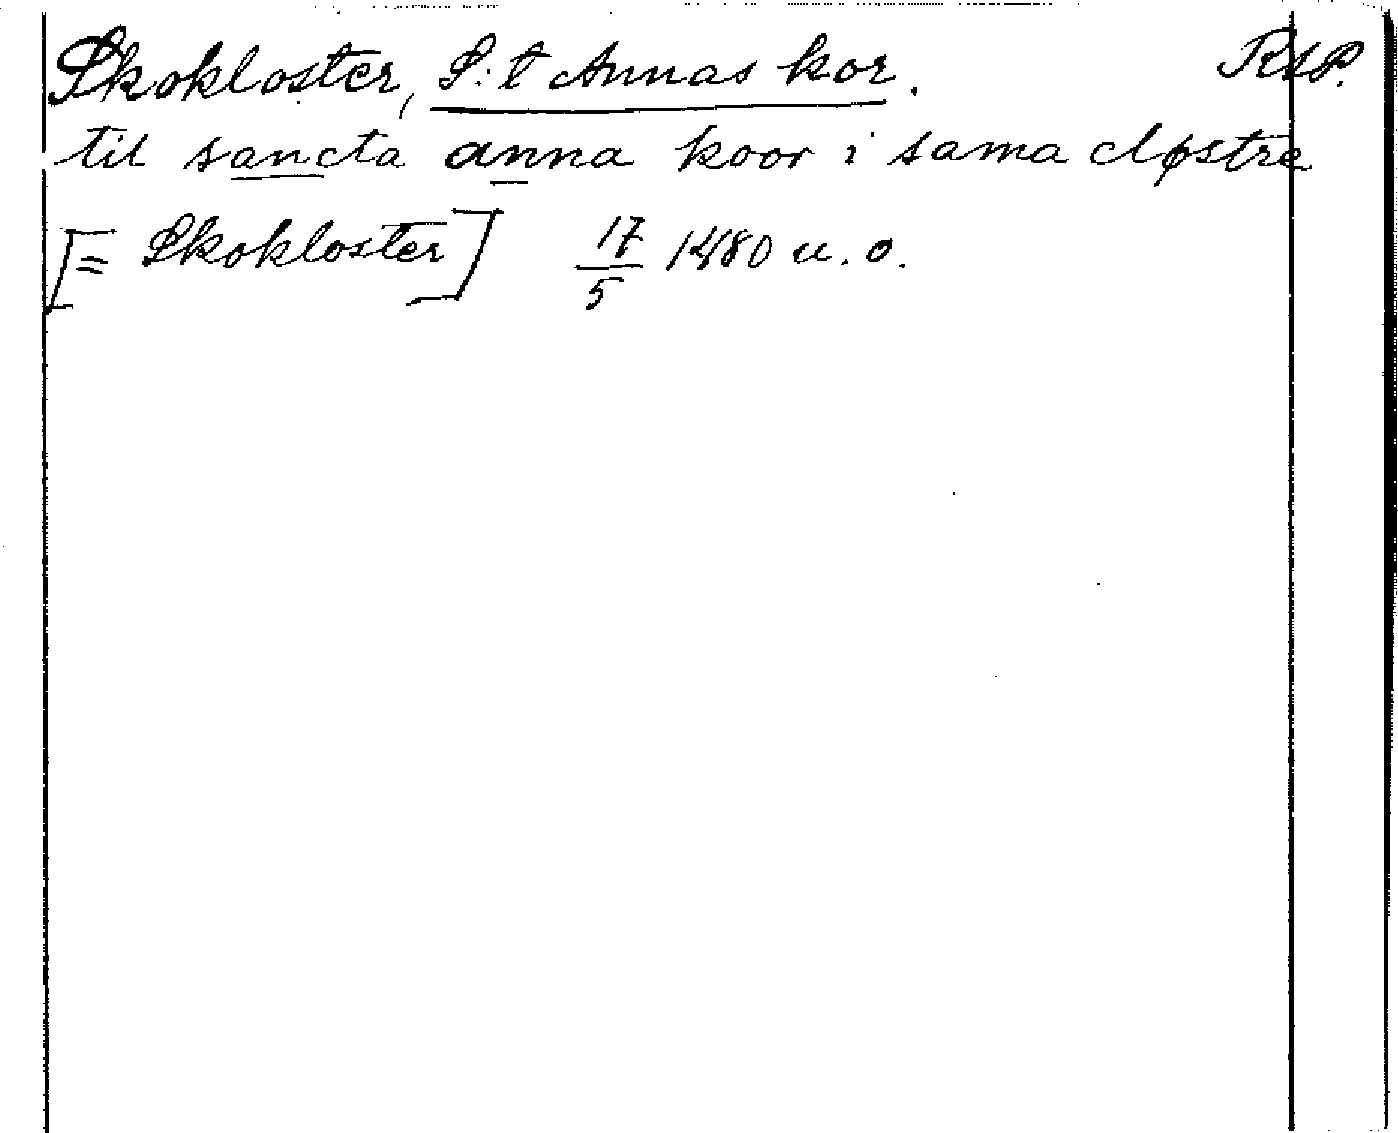 Skokloster, S:t Annas kor. RAP.
til sancta anna koor i sama cløstre
[= Skokloster] 17/5 1480 u. o.